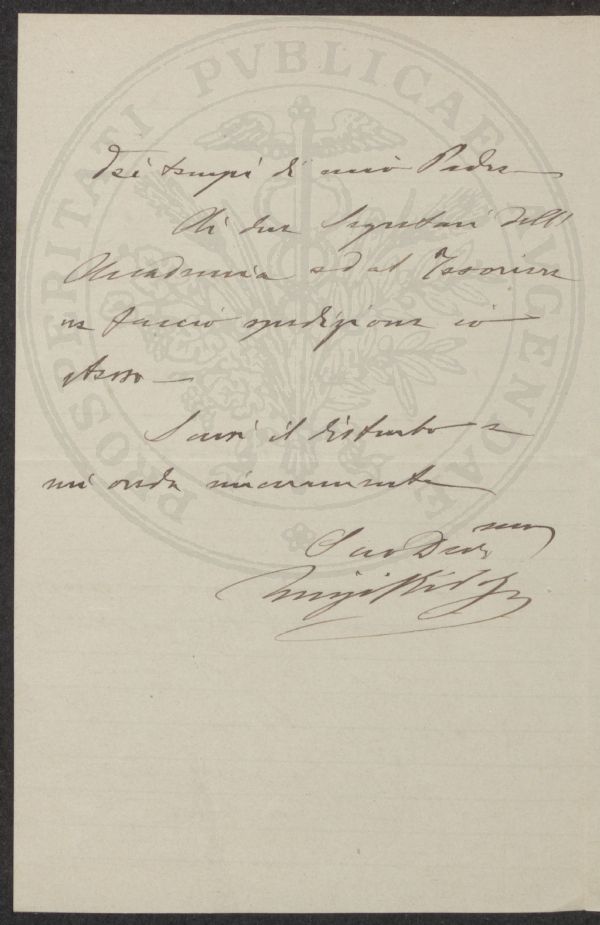 PROSPERITATI PVBLICAE AVGENDAE
dei tempi di mio Padre
Ai due Segretari dell'
Accademia ed al Tesoriere
ne faccio spedizione io
stesso —
Scusi il disturbo e
mi creda sinceramente
Suo Dev mo
Luigi